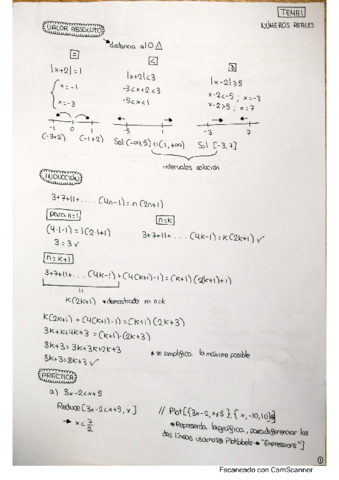 TEMA 1
NÚMEROS REALES
VALOR ABSOLUTO → distancia al 0 △
= < ≥
|x+2|=1 |x+2|<3 |x-2|≥5
x=-1 -3<x+2<3 x-2≤-5; x=-3
x=-3 -5<x<1 x-2≥5; x=7
-1 0 1 -5 1 -3 7
(-3+2) (-1+2) Sol (-∞,5) U (1,+∞) Sol [-3,7]
intervalos solución
INDUCCIÓN
3+7+11+.....(4n-1)=n(2n+1)
para n=1 n=k
(4·1-1)=1(2·1+1) 3+7+11+....(4k-1)=k(2k+1) ✓
3=3 ✓
n=k+1
3+7+11+....(4k-1)+(4(k+1)-1)=(k+1)(2(k+1)+1)
k(2k+1) * demostrado en n=k
k(2k+1)+(4(k+1)-1)=(k+1)(2k+3)
3k+k+4k+3=(k+1)·(2k+3)
8k+3=3k+3k+2k+3 * se simplifica lo máximo posible
8k+3=8k+3 ✓
PRÁCTICA
a) 3x-2<x+5
Reduce[3x-2<x+5,x] // Plot[{3x-2,x+5},{x,-10,10}]
→ x<7/2 * Representa la gráfica, para diferenciar las
dos líneas usamos PlotLabels→"Expressions"]
1
Escaneado con CamScanner